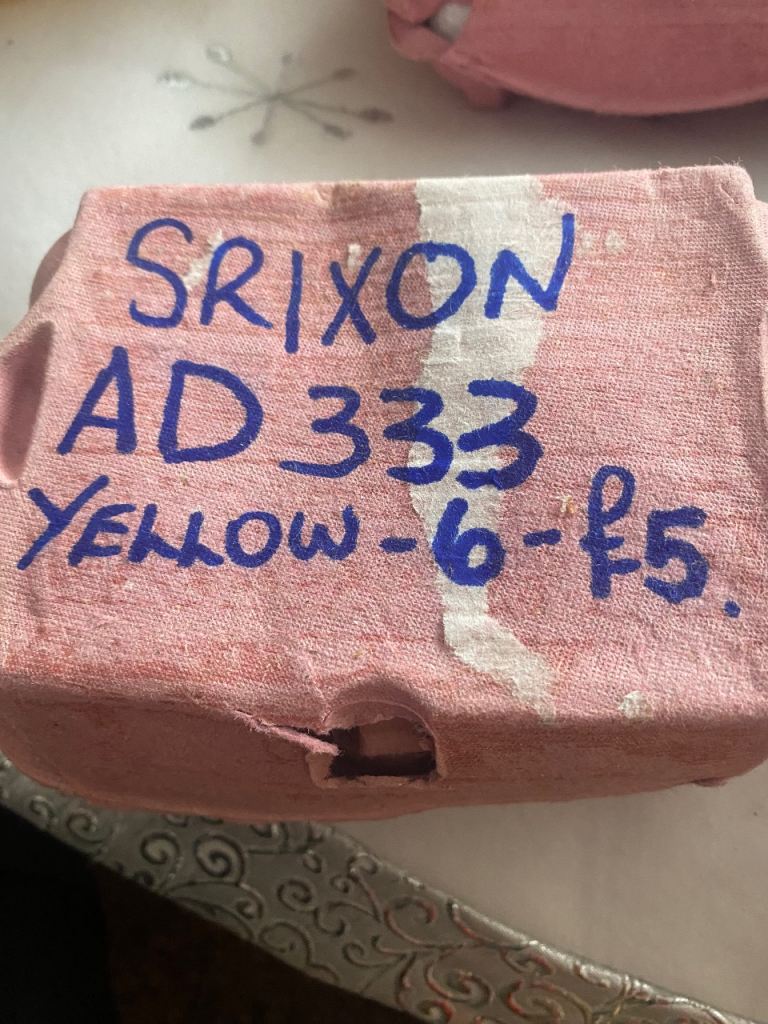 SRIXON
AD 333
YELLOW - 6 - £5.